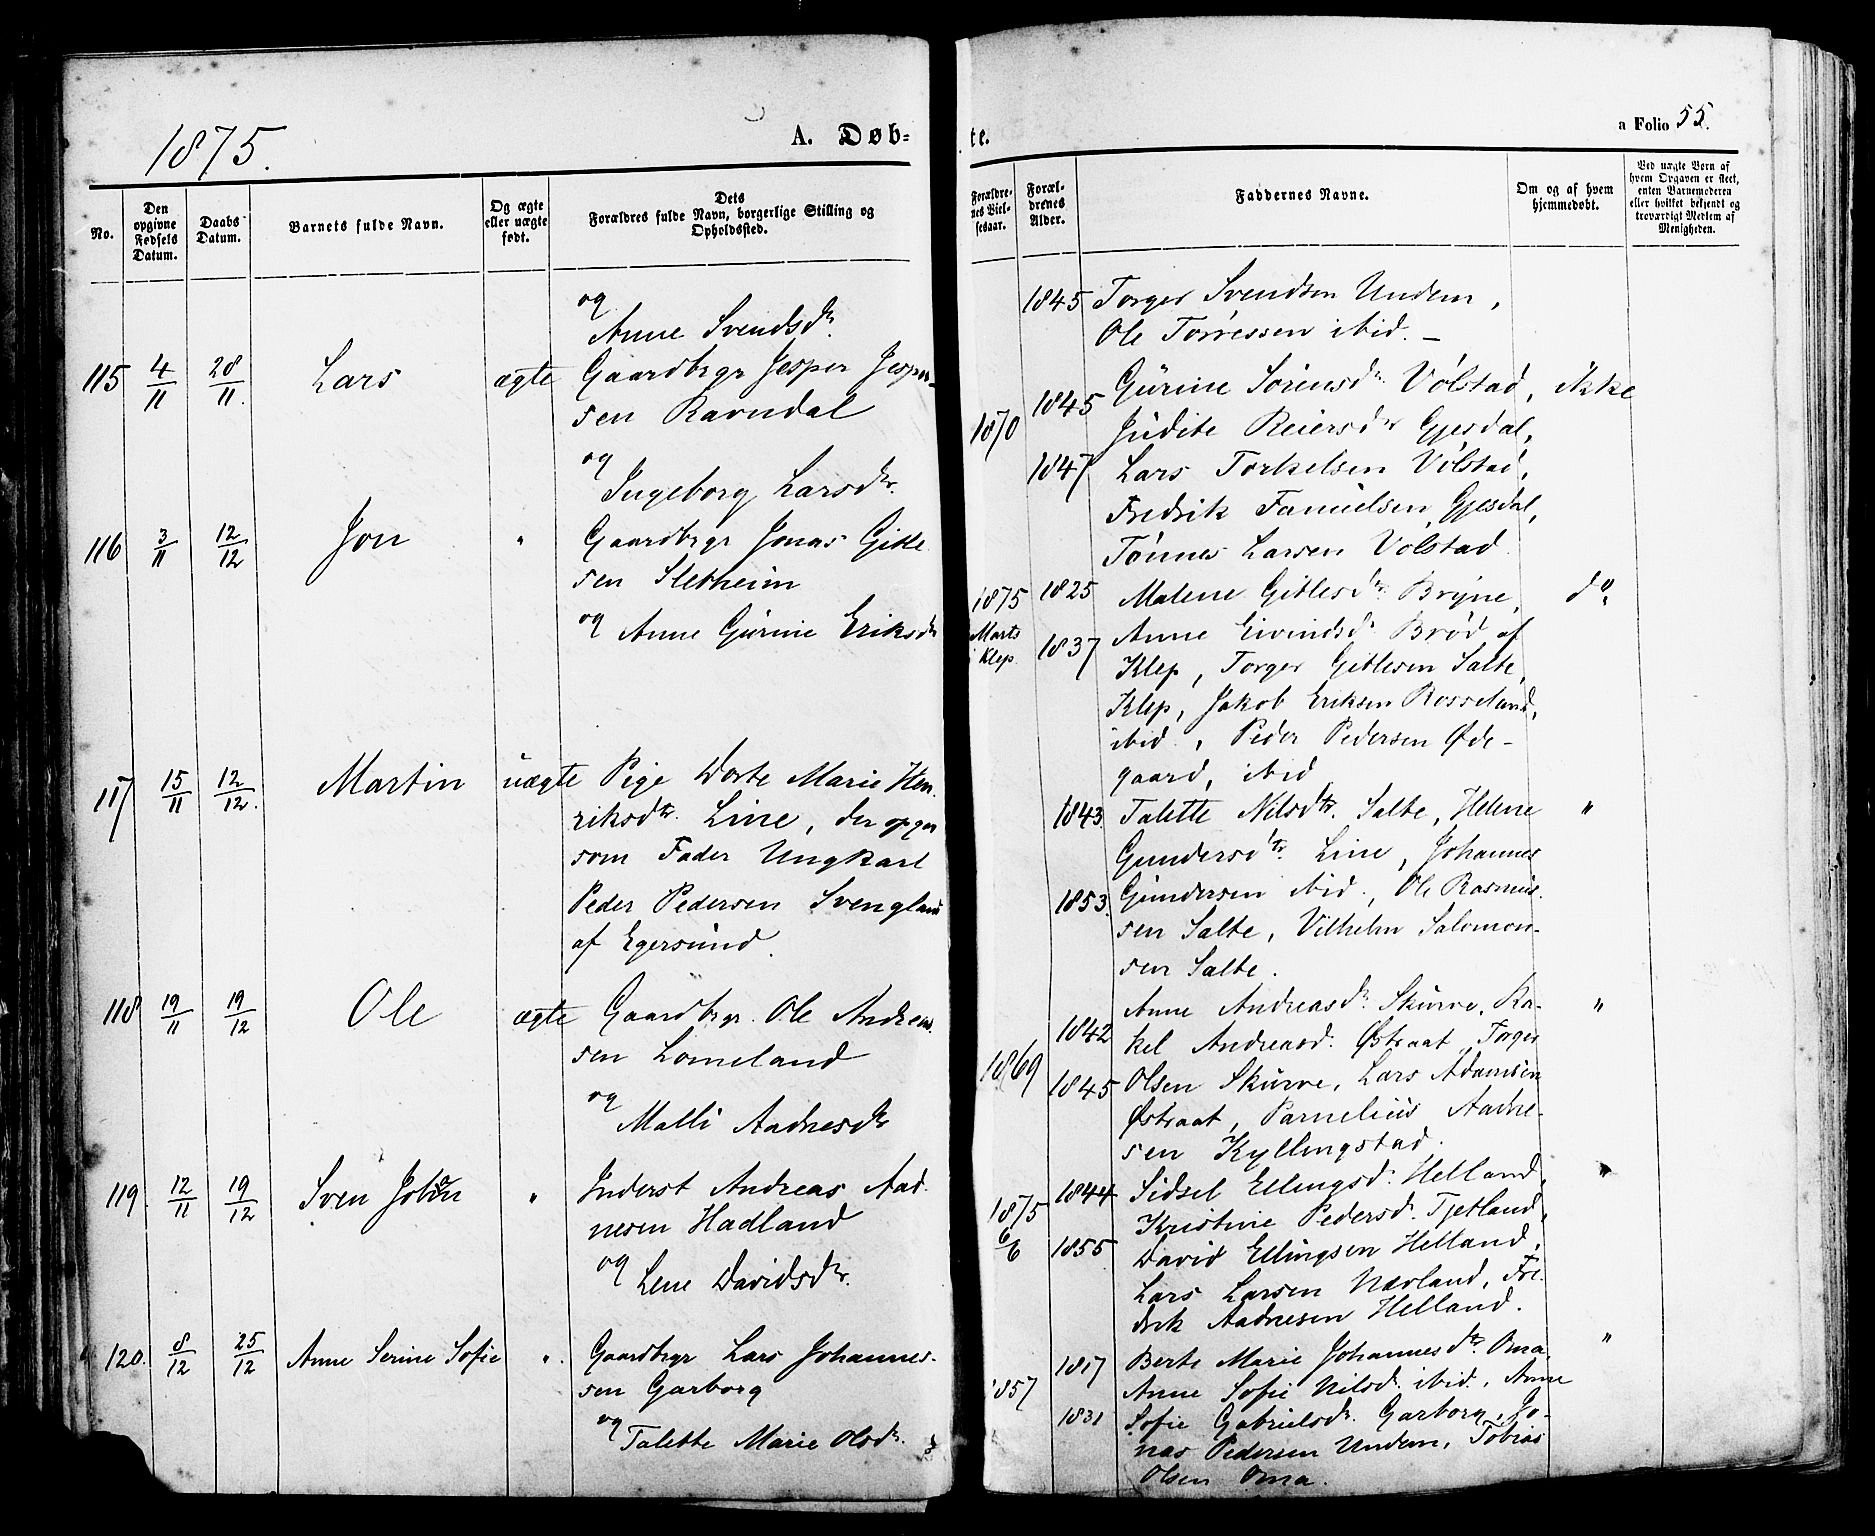 1875.
A. Døb-
te.
a Folio 55.
No.
Den opgivne Fødsels Datum.
Daabs Datum.
Barnets fulde Navn.
Og ægte eller uægte født.
Dets Forældres fulde Navn, borgerlige Stilling og Opholdssted.
Forældrenes Vielsesaar.
Forældrenes Alder.
Faddernes Navne.
Om og af hvem hjemmedøbt.
Ved uægte Børn af hvem Opgaven er skeet, enten Barnemoderen eller hvilket bekjendt og troværdigt Medlem af Menigheden.
og
Anne Svendsdr.
1845 Torger Svendsen Undem,
Ole Torressen ibid. —
115 4/11 28/11 Lars ægte Gaardbrgr Jesper Jesper-
sen Ravndal
og
Ingeborg Larsdr.
1870 1845 1847
Gurine Sørensdr. Vølstad, ikke
Judite Reiersdr Gjesdal,
Lars Torkelsen Vølstad,
Fredrik Samuelsen Gjesdal,
Tønnes Larsen Vølstad
116 3/11 12/12 Jon " Gaardbrgr Jonas Gitle
sen Sletheim
og Anne Gurine Eriksdr
1875 Marts i Klep. 1825 1837
Malene Gitlesdtr. Bryne, do.
Anne Eivindsdr. Brød af
Klep, Torger Gitlesen Salte,
Klep, Jakob Eriksen Rosseland,
ibid., Peder Pedersen Øde-
gaard, ibid
117 15/11 12/12. Martin uægte Pige Dorte Marie Hen-
riksdtr. Line, der opger
som Fader Ungkarl
Peder Pedersen Svengland
af Egersund.
1843. 1853.
Talette Nilsdtr. Salte, Helene "
Gundersdtr. Line, Johannes
Gundersen ibid., Ole Rasmus-
sen Salte, Vilhelm Salomon-
sen Salte.
118 19/11 19/12 Ole ægte Gaardbrgr. Ole Andreas
sen Lomeland
og
Malli Aadnesdr
1869 1842 1845
Anne Andreasdr. Skurve, Ra- "
kel Andreasd. Østraat, Torger
Olsen Skurve, Lars Adamsen
Østraat, Parnelius Aadne-
sen Kyllingstad.
119 12/11 19/12 Sven Johan " Inderst Andreas Aad-
nesen Hadland
og
Lene Davidsdr.
1875 6/6 1844 1855
Sidsel Ellingsd. Helland, "
Kristine Pedersd. Tjetland,
David Ellingsen Helland,
Lars Larsen Nærland, Fre-
drik Aadnesen Helland.
120. 8/12 25/12 Anne Serine Sofie ". Gaardbrgr Lars Johannes-
sen Garborg
og
Talette Marie Olsdr.
1857 1817 1831
Berte Marie Johannesdtr. Oma, "
Anne Sofie Nilsd. ibid., Anne
Sofie Gabrielsdr. Garborg, Jo-
nas Pedersen Undem, Tobias
Olsen Oma.